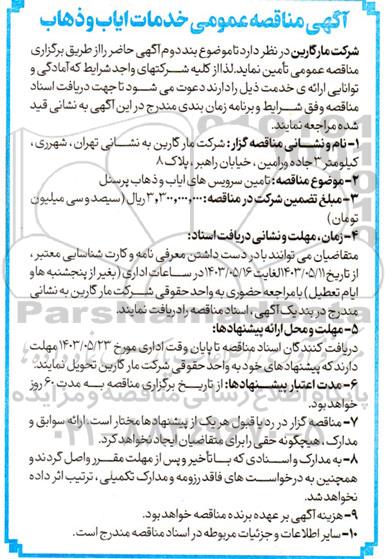 آگهی مناقصه عمومی خدمات ایاب و ذهاب
شرکت مارگارین در نظر دارد تا موضوع بند دوم آگهی حاضر را از طریق برگزاری
مناقصه عمومی تأمین نماید. لذا از کلیه شرکتهای واجد شرایط که آمادگی و
توانایی ارائه ی خدمت ذیل را دارند دعوت می شود تا جهت دریافت اسناد
مناقصه وفق شرایط و برنامه زمان بندی مندرج در این آگهی به نشانی قید
شده مراجعه نمایند.
۱- نام و نشانی مناقصه گزار: شرکت مارگارین به نشانی تهران، شهرری،
کیلومتر ۳ جاده ورامین، خیابان راهبر، پلاک ۸
۲- موضوع مناقصه: تامین سرویس های ایاب و ذهاب پرسنل
۳- مبلغ تضمین شرکت در مناقصه: ۳,۳۰۰,۰۰۰,۰۰۰ ریال (سیصد و سی میلیون
تومان)
۴- زمان، مهلت و نشانی دریافت اسناد:
متقاضیان می توانند با در دست داشتن معرفی نامه و کارت شناسایی معتبر،
از تاریخ ۱۴۰۳/۰۵/۱۱ لغایت ۱۴۰۳/۰۵/۱۶ در ساعات اداری (بغیر از پنجشنبه ها و
ایام تعطیل) با مراجعه حضوری به واحد حقوقی شرکت مارگارین به نشانی
مندرج در بند یک آگهی، اسناد مناقصه را دریافت نمایند.
۵- مهلت و محل ارائه پیشنهادها:
دریافت کنندگان اسناد مناقصه تا پایان وقت اداری مورخ ۱۴۰۳/۰۵/۲۳ مهلت
دارند که پیشنهادهای خود به واحد حقوقی شرکت مارگارین تحویل نمایند.
۶- مدت اعتبار پیشنهادها: از تاریخ برگزاری مناقصه به مدت ۶۰ روز
خواهد بود.
۷- مناقصه گزار در رد یا قبول هر یک از پیشنهادها مختار است. ارائه سوابق و
مدارک، هیچگونه حقی را برای متقاضیان ایجاد نخواهد کرد.
۸- به مدارک و اسنادی که با تأخیر و پس از مهلت مقرر واصل گردند و
همچنین به درخواست های فاقد رزومه و مدارک تکمیلی، ترتیب اثر داده
نخواهد شد.
۹- هزینه آگهی بر عهده برنده مناقصه خواهد بود.
۱۰- سایر اطلاعات و جزئیات مربوطه در اسناد مناقصه مندرج است.